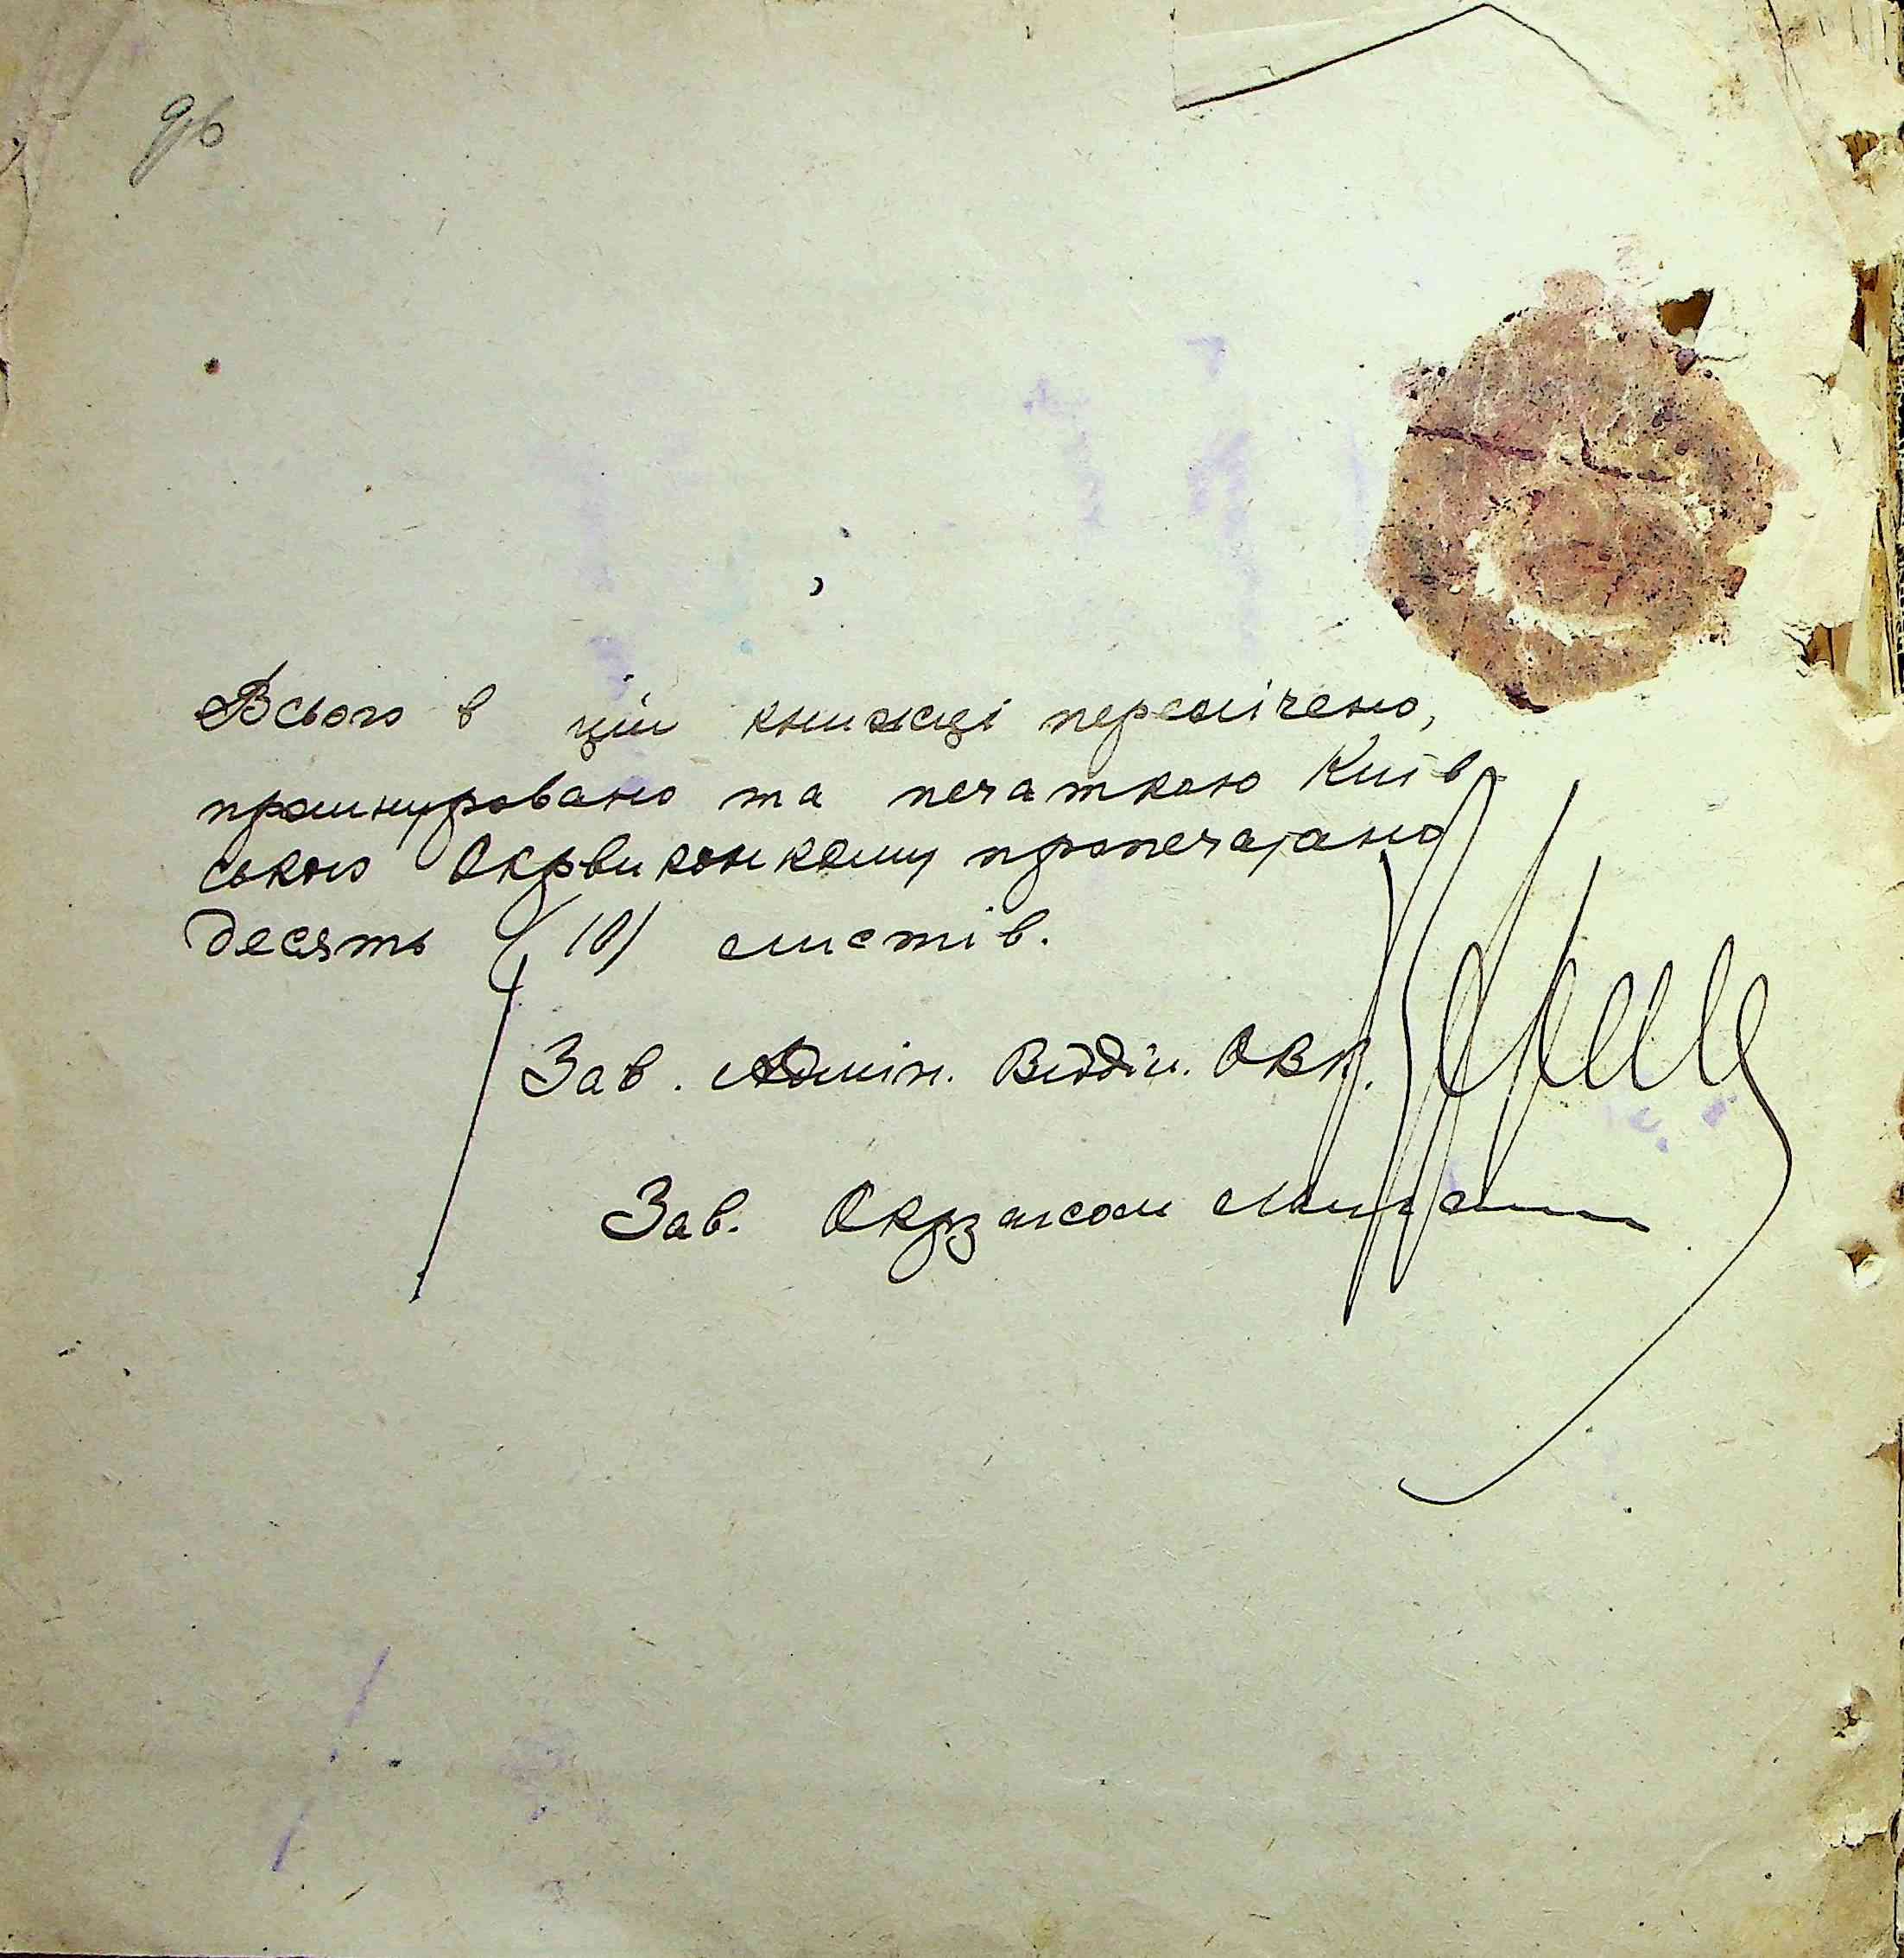 9б
Всього в цій книжці перелічено,
прошнуровано та печаткою Київ
ського Окрвиконкому пропечатано
десять /10/ листів.
Зав. Адмін. Відділ. ОВК.
Зав. Окрзагсом